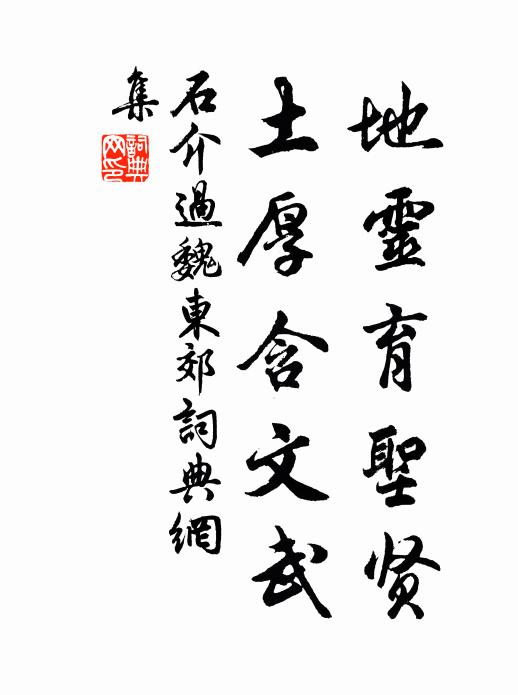 地靈育聖贤
土厚含文武
石介過魏東郊詞典網
集
詞典
网印